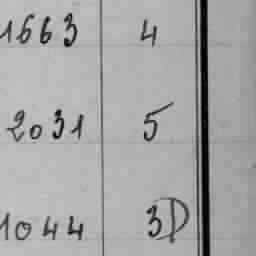 1663 4
2031 5
1044 3D